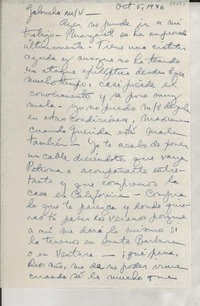 Zalmela m/v - Oct 5, 1946
Ayer no pude ir a mi
trabajo - Margaret se ha empeorado
últimamente - Tiene una
aguda y aunque no ha tenido
un ataque epiléptico desde hace
mucho tiempo, casi pierde el
conocimiento y se pone muy
mala - yo no puedo
en estas condiciones,
cuando querida está
también - Ya te acabo de poner
un cable diciéndote que vaya
Petrona a acompañarte entre-
tanto y que compremos la
casa de California - Compra
lo que te parezca y donde quie-
ras tú para los veranos porque
a mí me dará lo mismo si
la tenemos en Santa Barbara
o en Ventura - ¡qué pena,
Dios mío, no poder
cuando sé la mucho que